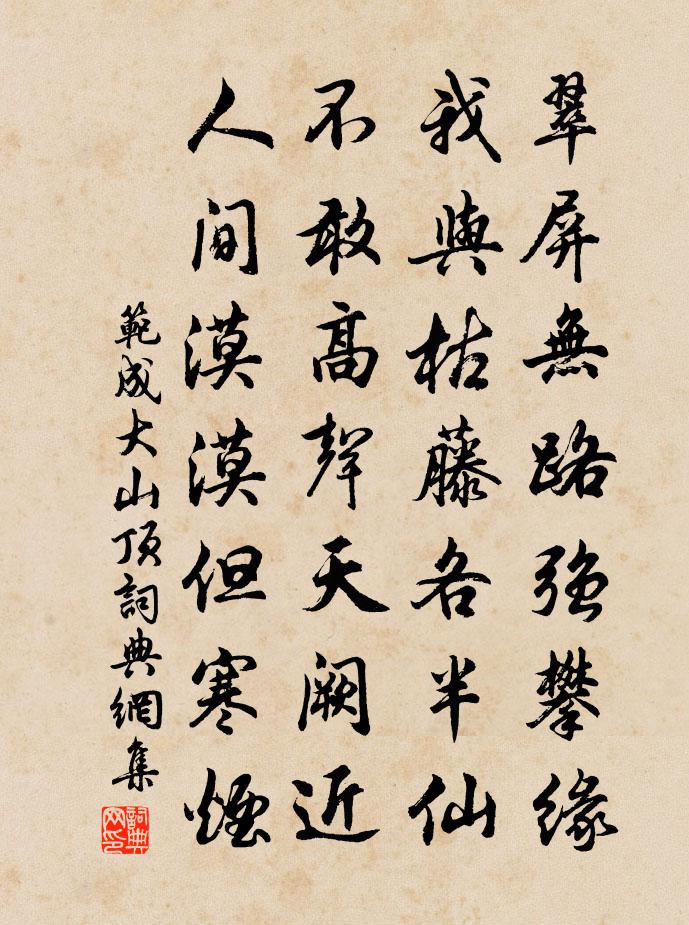 翠屏無路強攀緣
我與枯藤各半仙
不敢高聲天闕近
人間漠漠但寒煙
範成大山頂詞典網集
詞典網印